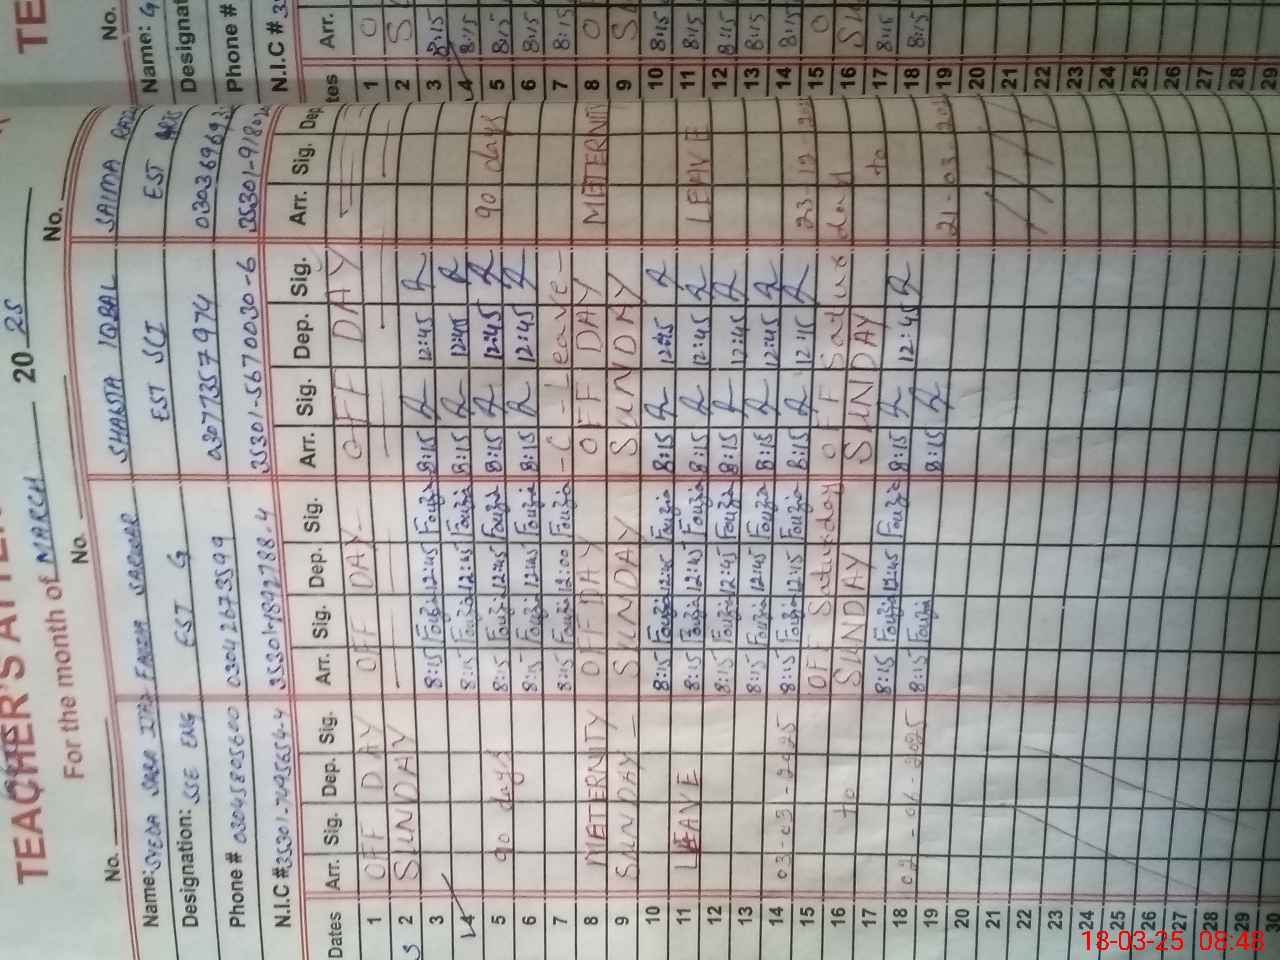 TEACHER'S ATTEN
For the month of MARCH 20 25
No.
No.
No.
Name: SYEDA SABA
Designation: SSE ENG
Phone # 03045805600
N.I.C #
Dates Arr. Sig. Dep. Sig.
1 OFF DAY
2 SUNDAY
3
4
5 90 days
6
7
8 METERNITY
9 SUNDAY
10
11 LEAVE
12
13
14 03-03-2025
15
16 to
17
18
19
20
21
22
23
24
25
26
27
28
29
30
SARWAR
EST G
03042673599
Arr. Sig. Dep. Sig.
OFF DAY
8:15 Fouzia 12:45 Fouzia
8:15 Fouzia 12:45 Fouzia
8:15 Fouzia 12:45 Fouzia
8:15 Fouzia 12:45 Fouzia
8:15 Fouzia 12:00 Fouzia
OFF DAY
SUNDAY
8:15 Fouzia 12:45 Fouzia
8:15 Fouzia 12:45 Fouzia
8:15 Fouzia 12:45 Fouzia
8:15 Fouzia 12:45 Fouzia
8:15 Fouzia 12:15 Fouzia
OFF Saturday
SUNDAY
8:15 Fouzia 12:45 Fouzia
8:15 Fouzia
SHAISTA IQBAL
EST SCI
03077357974
35301-5670030-6
Arr. Sig. Dep. Sig.
OFF DAY
8:15 12:45
8:15 12:45
8:15 12:45
8:15 12:45
-C-Leave-
OFF DAY
SUNDAY
8:15 12:45
8:15 12:45
8:15 12:45
8:15 12:45
8:15 12:15
OFF Saturday
SUNDAY
8:15 12:45
8:15
SAIMA
EST
Arr. Sig. Dep
90 days
METERNITY
LEAVE
23-12-
to
21-03-
TE
No.
Name:
Designat
Phone #
N.I.C #
tes Arr.
1 O
2 S
3 8:15
4 8:15
5 8:15
6 8:15
7 8:15
8 O
9 S
10 8:15
11 8:15
12 8:15
13 8:15
14 8:15
15 O
16 SU
17 8:15
18 8:15
19
20
21
22
23
24
25
26
27
28
29
18-03-25 08:48